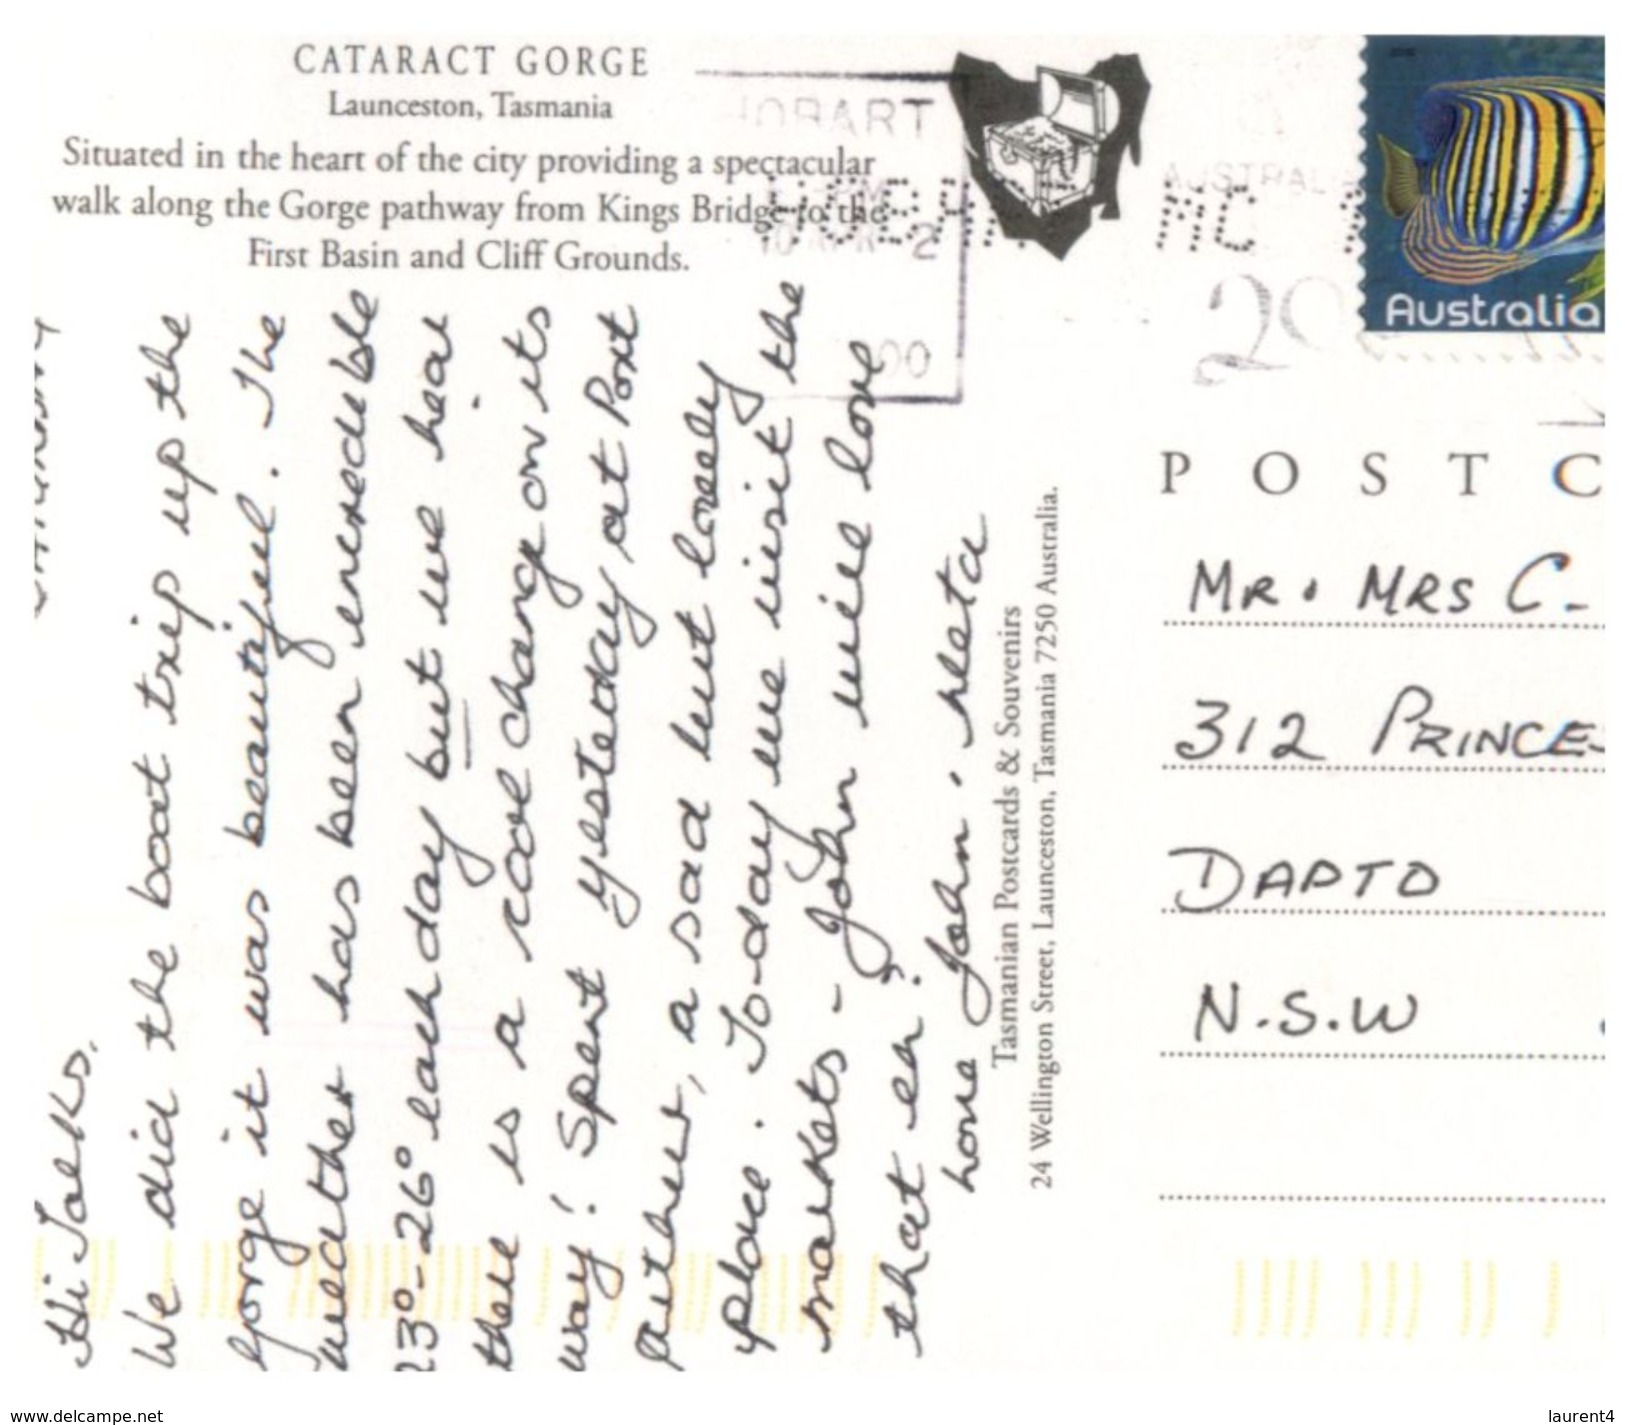 CATARACT GORGE
Launceston, Tasmania
Situated in the heart of the city providing a spectacular
walk along the Gorge pathway from Kings Bridge to the
First Basin and Cliff Grounds.
HOBART
AUSTRALIA
Australia
POSTC
MR. MRS C.
312 PRINCES
DAPTO
N.S.W
Hi Folks.
We did the boat trip up the
Gorge it was beautiful. The
weather has been incredible
23°-26° each day but we hear
there is a cool change on its
way! Spent yesterday at Port
Arthur, a sad but lovely
place. To-day we visit the
markets - John will love
that eh!
love John. Reta
Tasmanian Postcards & Souvenirs
24 Wellington Street, Launceston, Tasmania 7250 Australia.
www.delcampe.net
laurent4